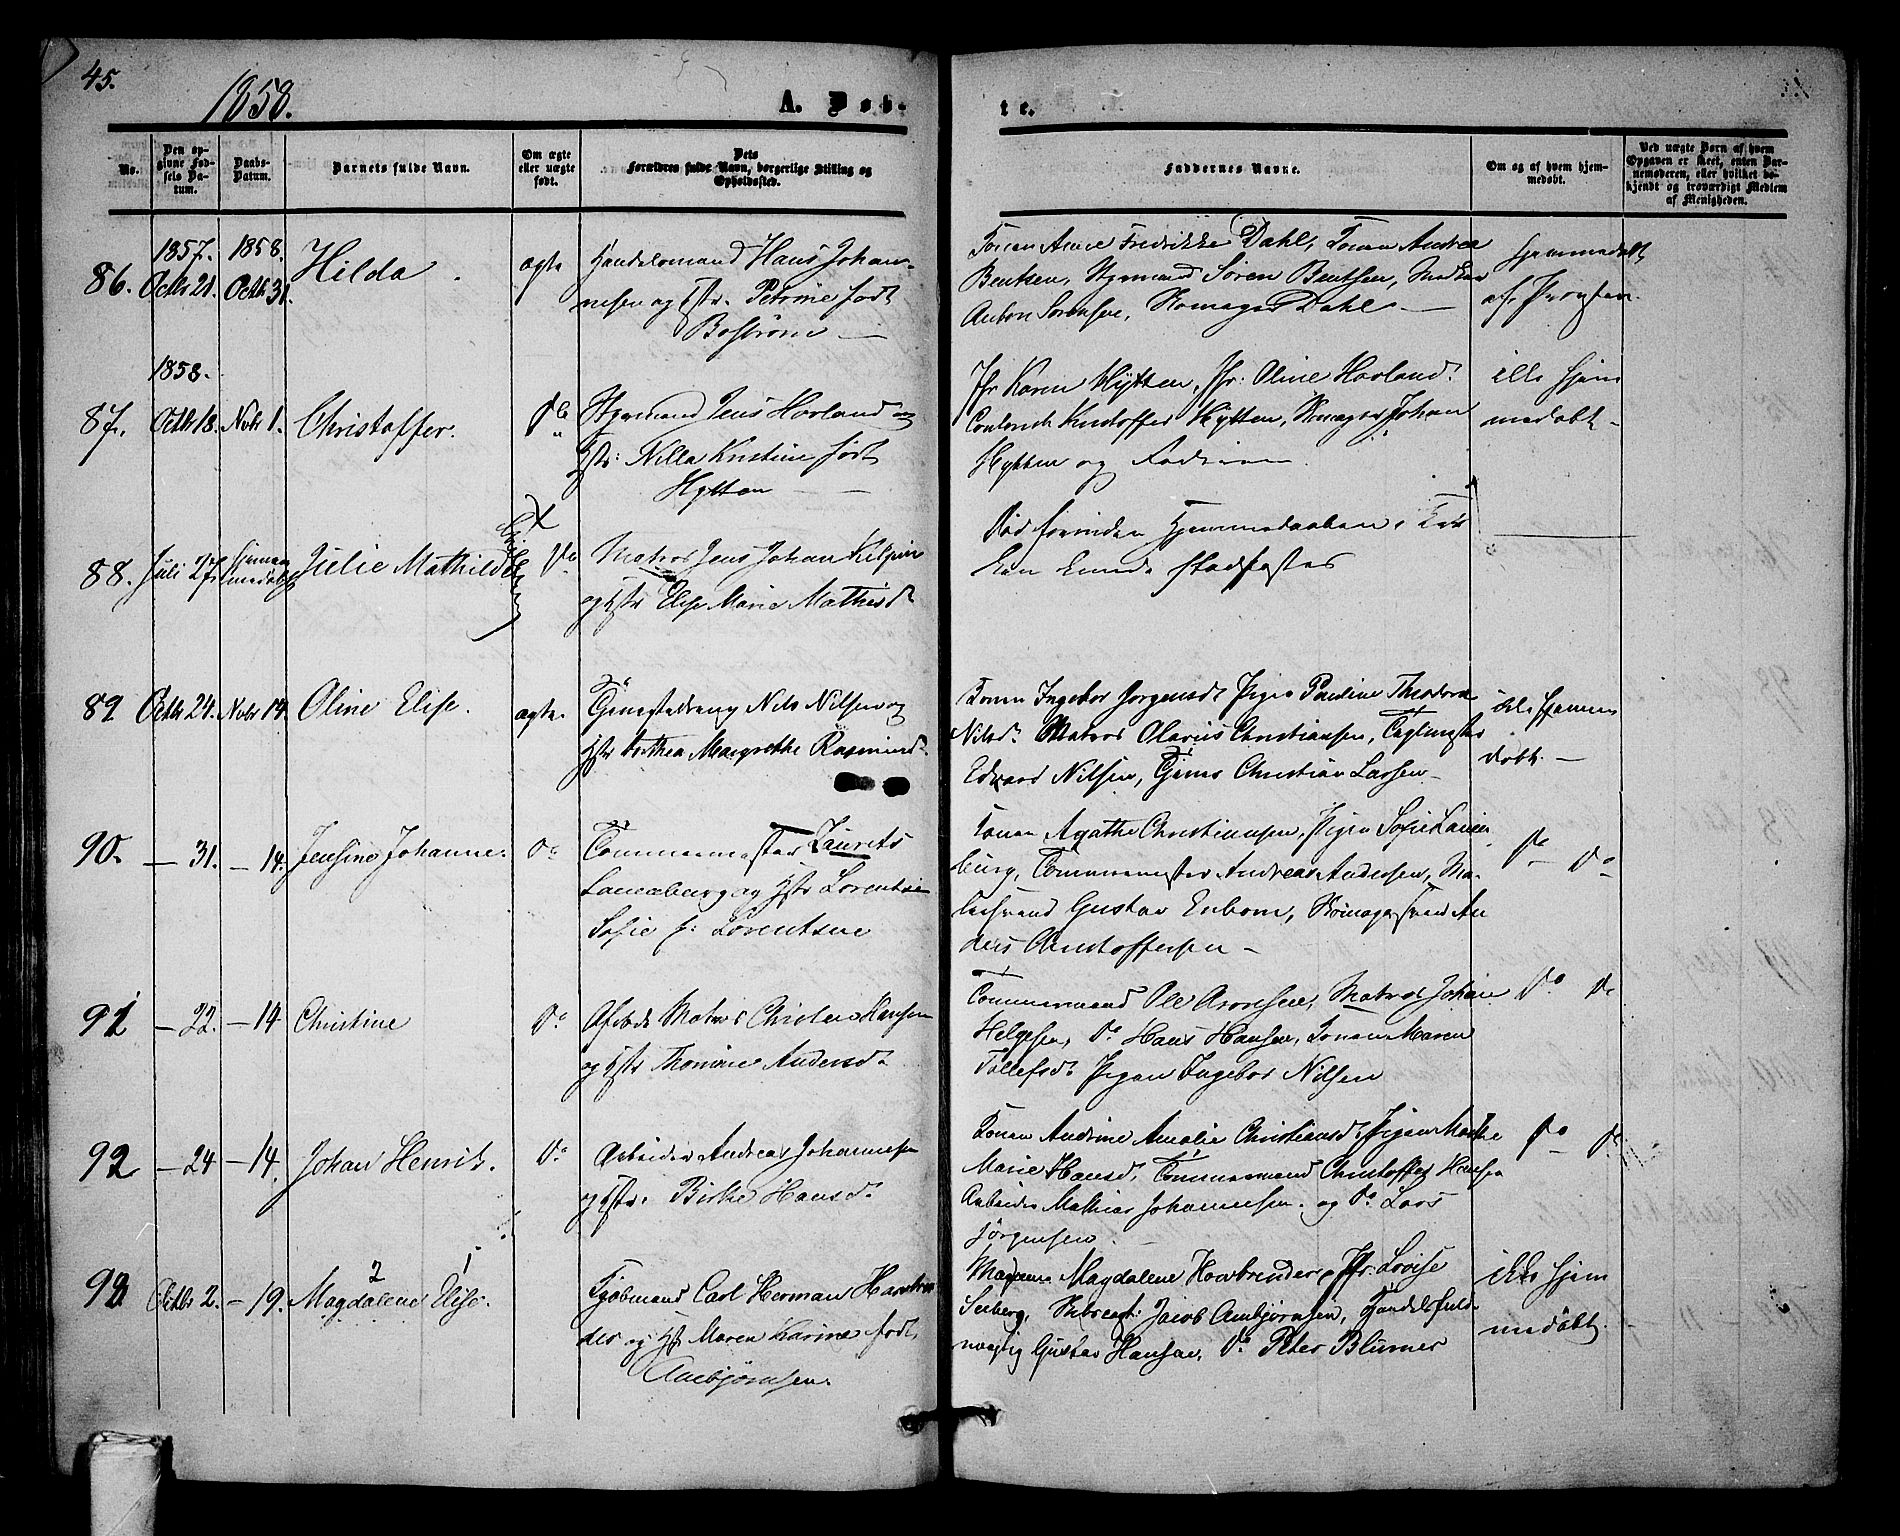 45.
1858.
A. Døb-
te.
No.
Den op-
givne Fød-
sels Da-
tum.
Daabs-
Datum.
Barnets fulde Navn.
Om ægte
eller uægte
født.
Dets
Forældres fulde Navn, borgerlige Stilling og
Opholdssted.
Faddernes Navne.
Om og af hvem hjem-
medøbt.
Ved uægte Børn af hvem
Opgaven er skeet, enten Bar-
nemoderen, eller hvilket be-
kjendt og troværdigt Medlem
af Menigheden.
1857. 1858.
86. Octbr 21. Octbr 31. Hilda
ægte
Handelsmand Hans Johan-
nesen og Hstr. Petrine født
Boström
Konen Anne Fredrikke Dahl, Konen Andrea
Bentsen, Styrmand Søren Bentsen,
Anton Sørensen, Skomager Dahl
Hjemmedøbt
af Provsten.
1858.
87. Octbr 18. Novbr 1. Christoffer.
do
Styrmand Jens Horland og
Hstr: Nilla Kristine født
Hytten
Jfr Karen Hytten, Jfr: Oline Horland.
Kristoffer Hytten, Johan
Hytten og Faderen.
ikke hjem
medøbt
88. Juli 27. Hjemme-
medøbt Julie Mathilde
do
Matros Jens Johan
og Hstr Elise Marie Mathisd.
Død forinden Hjemmedaaben i Kir
ken kunde stadfæstes
89 Octbr 24. Novbr 14. Oline Elise.
ægte.
Nils Nilsen og
Hstr Dorthea Margrethe Rasmusd.
Konen Ingebor Jørgensd. Pigen Pauline Theodora
Nilsd. Matros Olavus Christiansen,
Edvard Nilsen, Christian Larsen
ikke hjemme
døbt.
90. — 31. — 14. Jensine Johanne.
do
Tømmermester Laurits
og Hstr Lorentse
Sofie f: Lorentsen
Konen Agathe Christiansen, Pigen Sofie
burg, Tømmermester Andreas Andersen, Ma-
Gustav Enbom, An
ders Christoffersen
do do
91 — 22. — 14 Christine
do
Matros Christen Hansen
og Hstr Thomine Andersd.
Tømmermand Ole Aronsen, Matros Johan
Helgesen, do Hans Hansen, Konen Maren
Tollefsd. Pigen Ingebor Nilsen
do do
92 — 24 — 14. Johan Henrik.
do
Arbeider Andreas Johannesen
og Hstr. Birthe Hansd.
Konen Andrine Amalie Christiansd. Pigen
Marie Hansd, Tømmermand Christoffer Hansen
Arbeider Mathias Johannesen. og do Lars
Jørgensen
do do
2 1
93 Octbr 2. — 19. Magdalene Elise.
Kjøbmand Carl Herman
der og Hstr Maren Karine født
Anebjørnsen.
Madame Magdalene Jfr: Lovise
Seeberg, Jacob Anebjørnsen, Handelsfuld-
mægtig Gustav Hansen, do Peter Blumer
ikke hjem
medøbt.